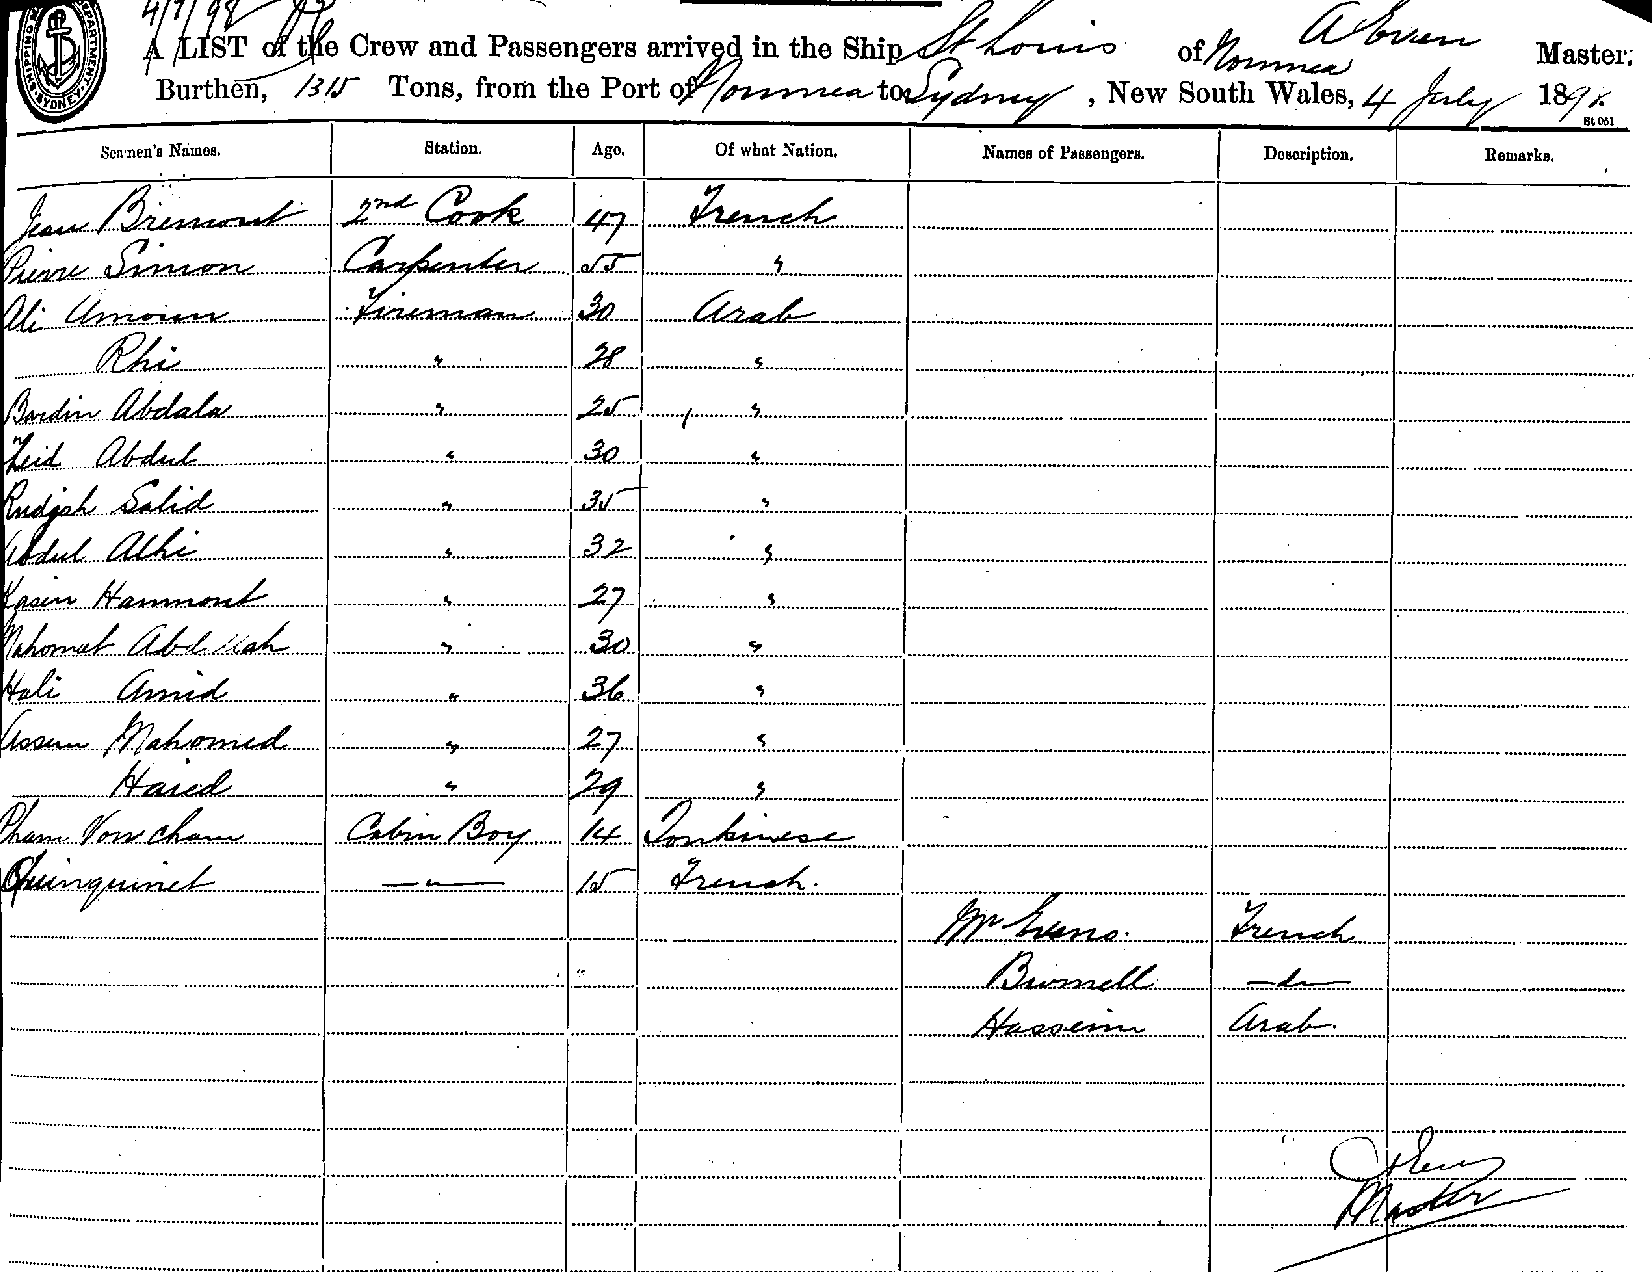 4/7/98
A LIST of the Crew and Passengers arrived in the Ship St Louis of Noumea Master,
Burthen, 1315 Tons, from the Port of Noumea to Sydney, New South Wales, 4 July 189
St 051
Seamen's Names. Station. Age. Of what Nation. Names of Passengers. Description. Remarks.
Jean Bremont 2nd Cook 47 French
Pierre Simon Carpenter 55 "
Ali Fireman 30 Arab
Rhi " 28 "
Abdala " 25 "
Zeid Abdul " 30 "
Salid " 35 "
Abdul Alhi " 32 "
Kasin Hammont " 27 "
Mahomat Abdullah " 30 "
Hali Amid " 36 "
Assem Mahomed " 27 "
Haied " 29 "
Pham Von cham Cabin Boy 14 Tonkinese
Quinquinet —"— 15 French.
Mr French
—do—
Hasseim Arab.
Master